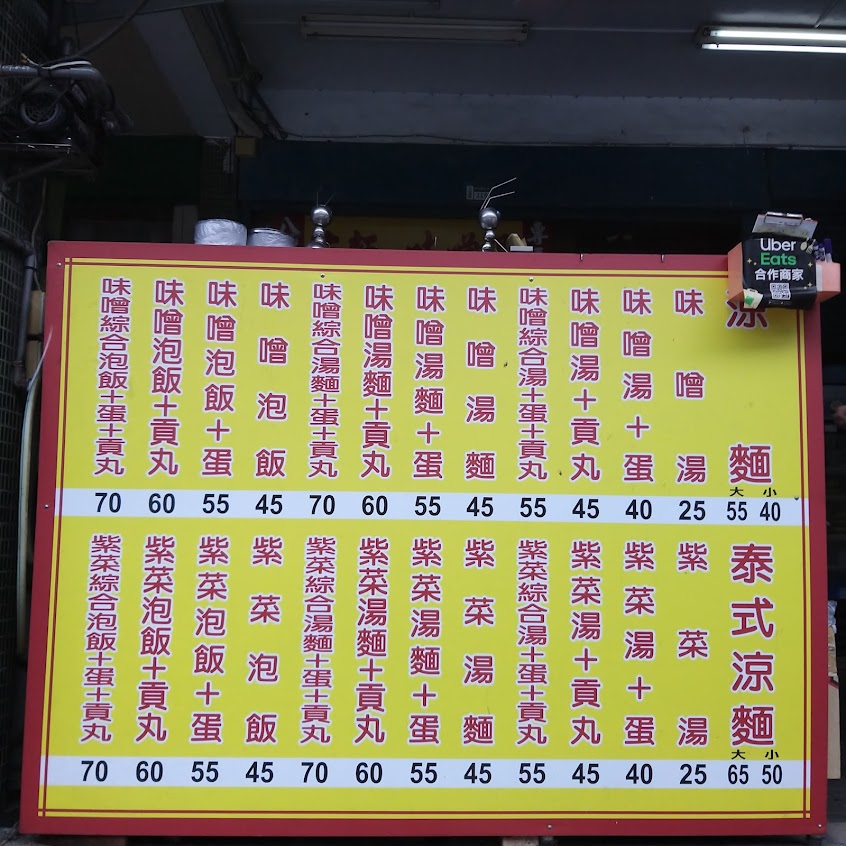 Uber
Eats
合作商家
涼麵
大 小
55 40
味噌湯
25
味噌湯+蛋
40
味噌湯+貢丸
45
味噌綜合湯+蛋+貢丸
55
味噌湯麵
45
味噌湯麵+蛋
55
味噌湯麵+貢丸
60
味噌綜合湯麵+蛋+貢丸
70
味噌泡飯
45
味噌泡飯+蛋
55
味噌泡飯+貢丸
60
味噌綜合泡飯+蛋+貢丸
70
泰式涼麵
大 小
65 50
紫菜湯
25
紫菜湯+蛋
40
紫菜湯+貢丸
45
紫菜綜合湯+蛋+貢丸
55
紫菜湯麵
45
紫菜湯麵+蛋
55
紫菜湯麵+貢丸
60
紫菜綜合湯麵+蛋+貢丸
70
紫菜泡飯
45
紫菜泡飯+蛋
55
紫菜泡飯+貢丸
60
紫菜綜合泡飯+蛋+貢丸
70